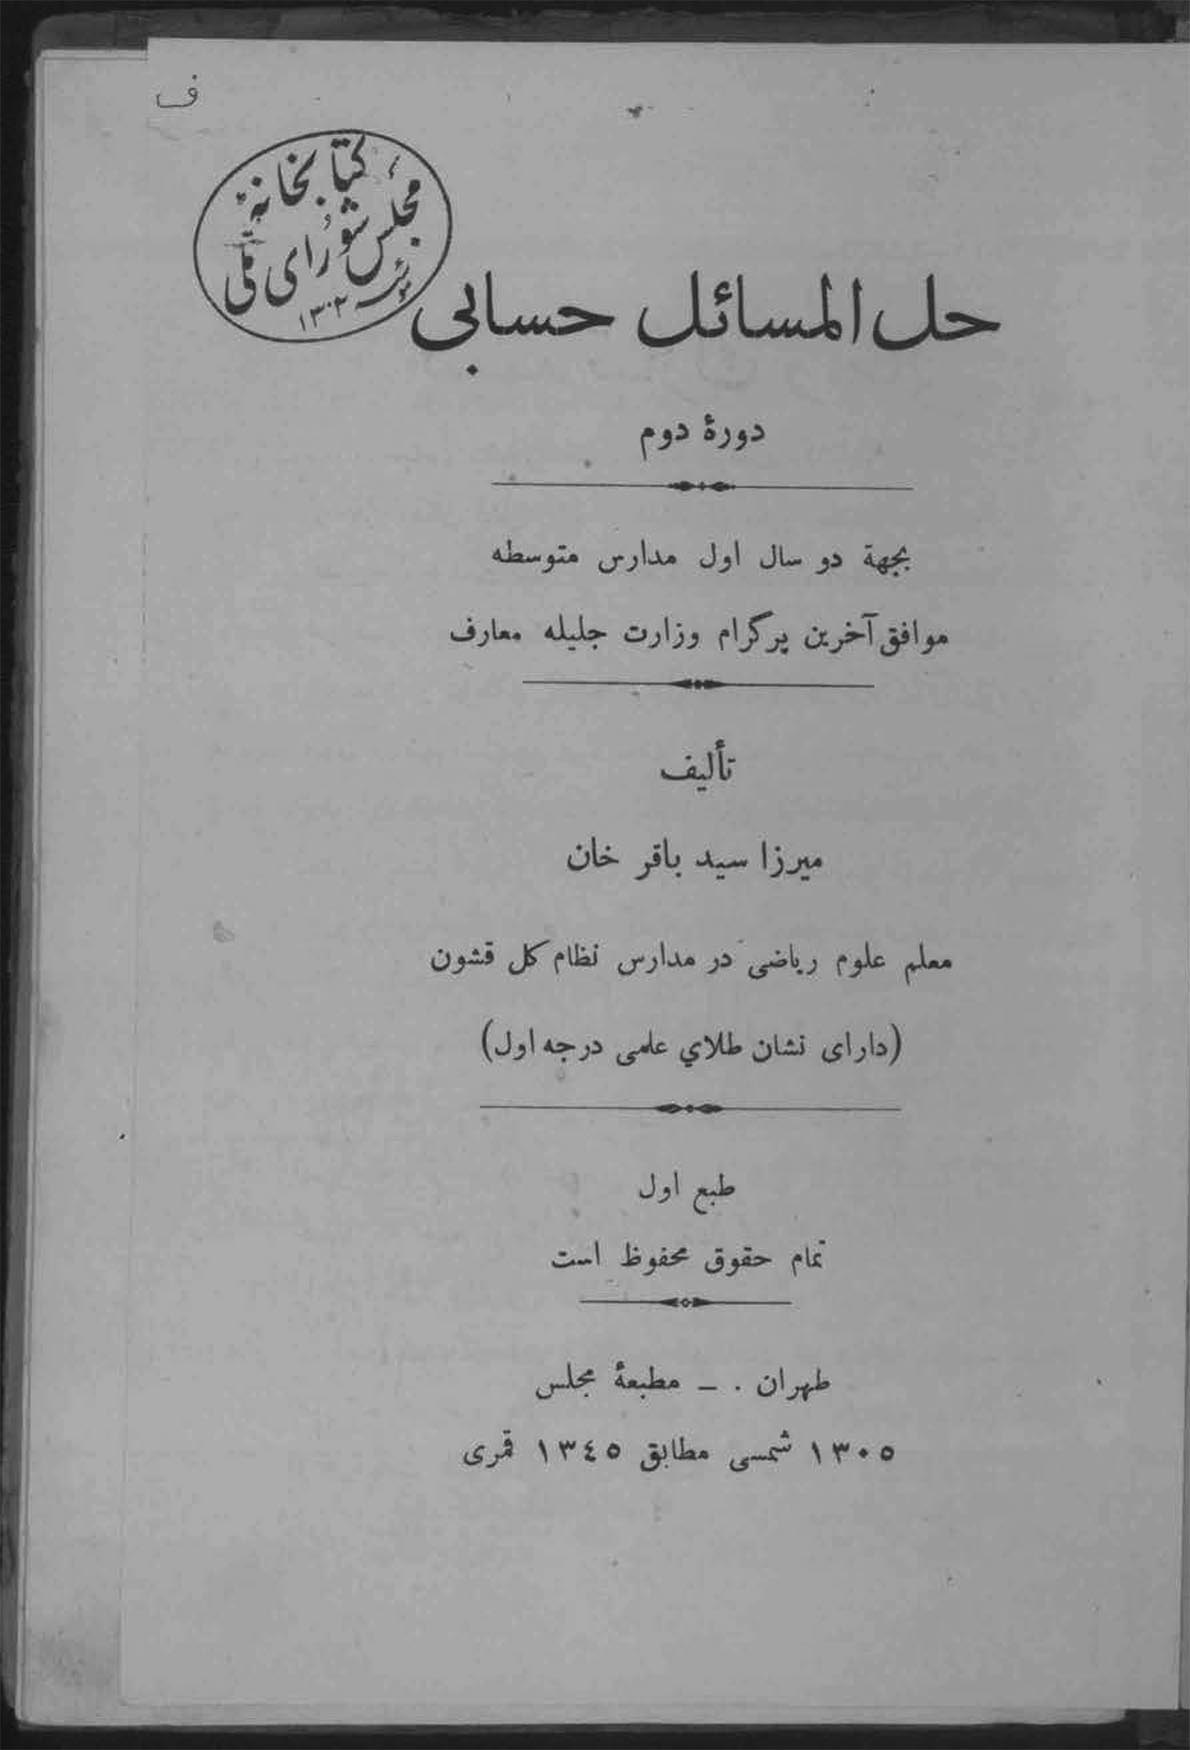 ف
کتابخانهٔ
مجلس شورای ملی
۱۳۰۲
حل المسائل حسابی
دورهٔ دوم
بجهة دو سال اول مدارس متوسطه
موافق آخرین پرگرام وزارت جلیله معارف
تألیف
میرزا سید باقر خان
معلم علوم ریاضی در مدارس نظام کل قشون
(دارای نشان طلاي علمی درجه اول)
طبع اول
تمام حقوق محفوظ است
طهران . ــ مطبعهٔ مجلس
١٣٠٥ شمسی مطابق ١٣٤٥ قمری